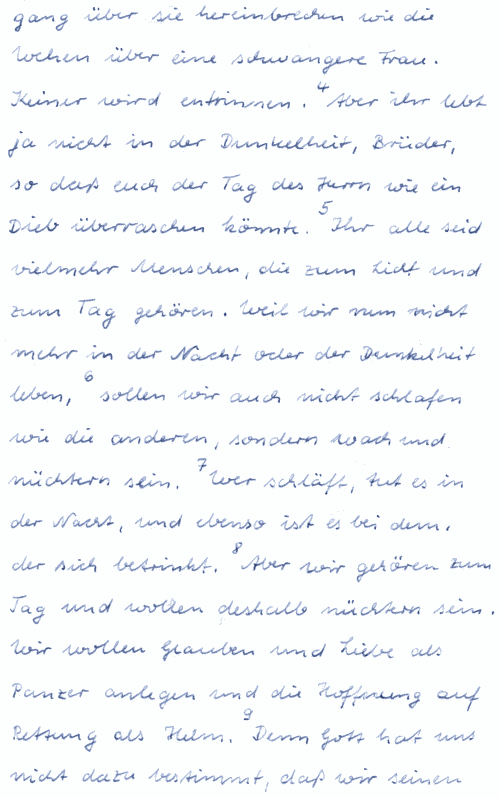 gang über sie hereinbrechen wie die
Wehen über eine schwangere Frau.
Keiner wird entrinnen. 4 Aber ihr lebt
ja nicht in der Dunkelheit, Brüder,
so daß euch der Tag des Herrn wie ein
Dieb überraschen könnte. 5 Ihr alle seid
vielmehr Menschen, die zum Licht und
zum Tag gehören. Weil wir nun nicht
mehr in der Nacht oder der Dunkelheit
leben, 6 sollen wir auch nicht schlafen
wie die anderen, sondern wach und
nüchtern sein. 7 Wer schläft, tut es in
der Nacht, und ebenso ist es bei dem,
der sich betrinkt. 8 Aber wir gehören zum
Tag und wollen deshalb nüchtern sein.
Wir wollen Glauben und Liebe als
Panzer anlegen und die Hoffnung auf
Rettung als Helm. 9 Denn Gott hat uns
nicht dazu bestimmt, daß wir seinen